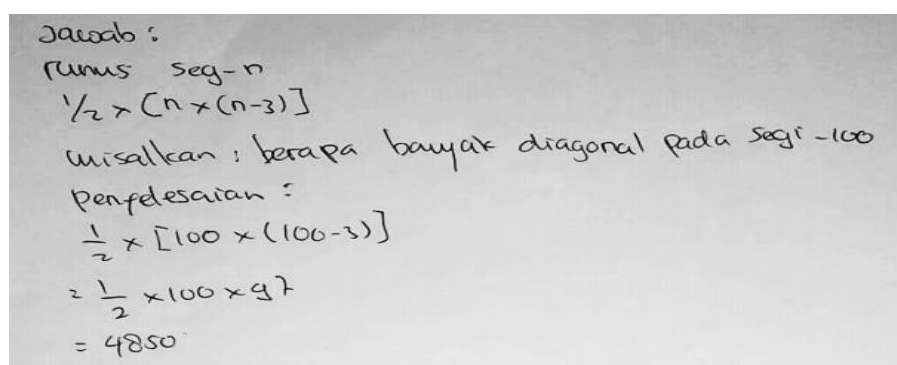 Jawab :
rumus seg-n
1/2 × [n × (n-3)]
misalkan : berapa banyak diagonal pada segi -100
Penyelesaian :
1/2 × [100 × (100-3)]
= 1/2 × 100 × 97
= 4850